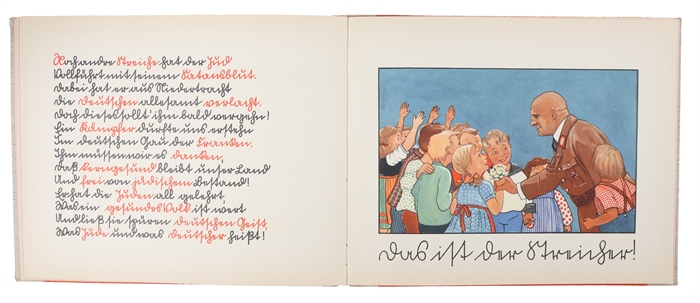 Noch andre Streiche hat der Jud
Vollführt mit seinem Satansblut.
Dabei hat er aus Niedertracht
die Deutschen allesamt verlacht.
Doch dieses sollt' ihm bald vergehn!
Ein Kämpfer durfte uns erstehn
Im deutschen Gau der Franken.
Ihm müssen wir es danken,
Daß kerngesund bleibt unser Land
Und frei von jüdischem Bestand!
Er hat die Juden all gelehrt,
Was ein gesundes Volk ist wert
Und ließ sie spüren deutschen Geist,
Was Jude und was Deutscher heißt!
Das ist der Streicher!